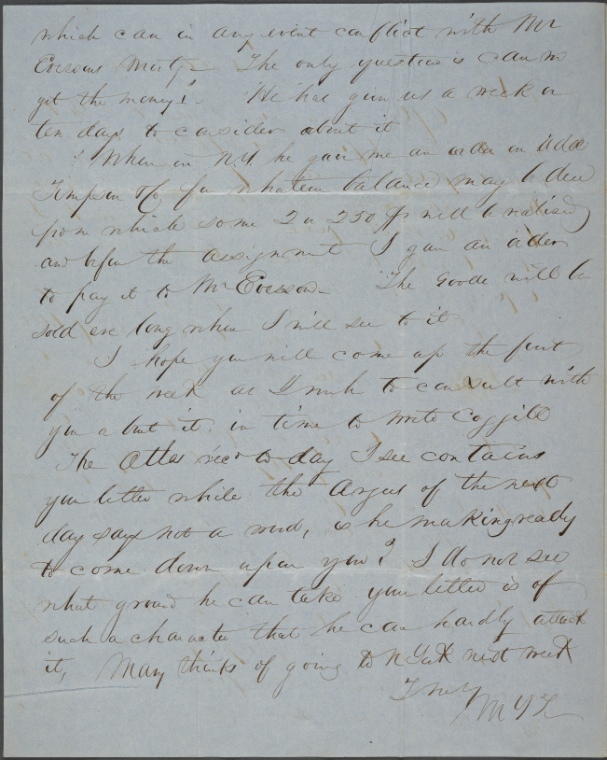 which can in any event conflict with Mr
Evesons The only question is can
get the money? He has given us a week or
ten days to consider about it
When in NY he gave me an order on
for whatever balance may be due
from which some 2 a 250 $ will be realised
and before the assignment I gave an order
to pay it to Mr The goods will be
sold ere long when I will see to it
I hope you will come up the first
of the week as I wish to consult with
you about it in time to write Coggill
The Atlas rec'd to day I see contains
your letter while the Argus of the next
day says not a word, is he making ready
to come down upon you? I do not see
what ground he can take your letter is of
such a character that he can hardly attack
it, Mary thinks of going to N York next week
Truly